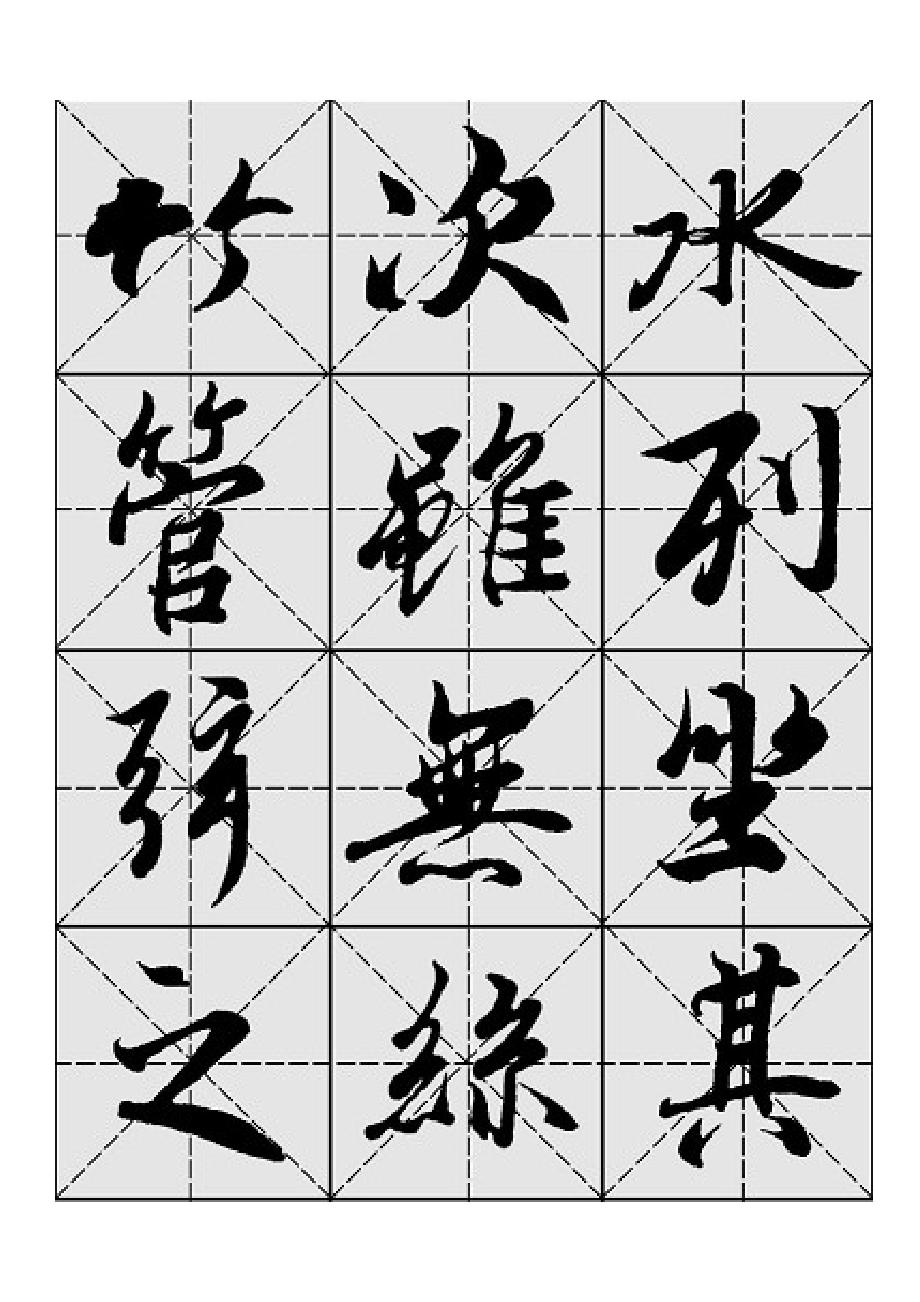 水列坐其
次雖無絲
竹管弦之